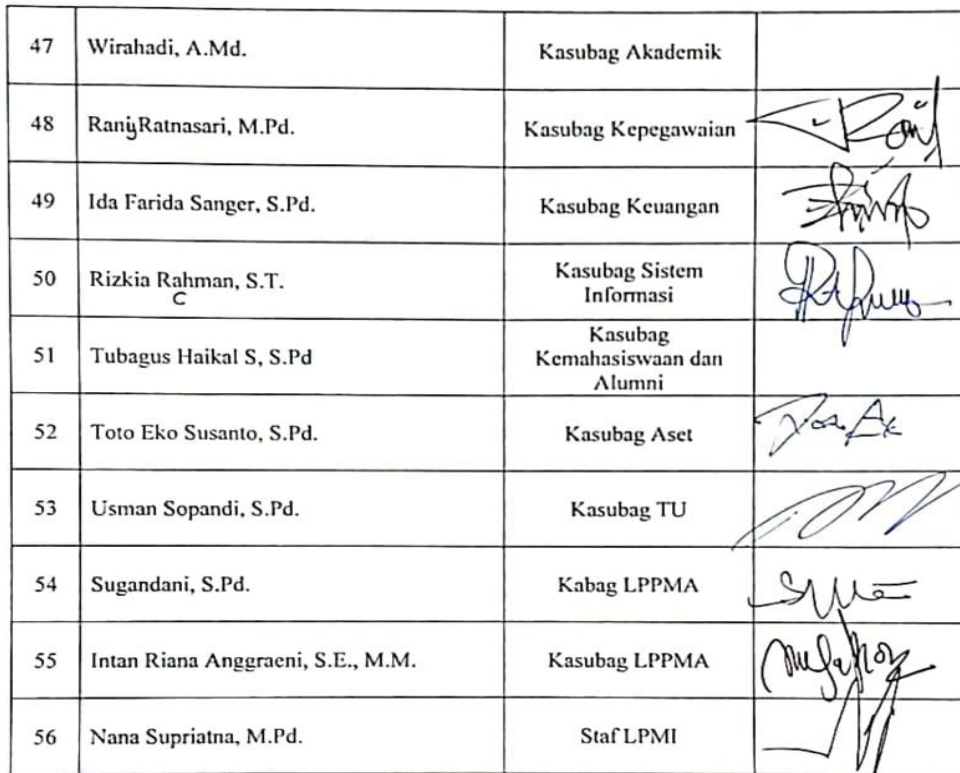 47 Wirahadi, A.Md. Kasubag Akademik
48 Rani Ratnasari, M.Pd. Kasubag Kepegawaian
49 Ida Farida Sanger, S.Pd. Kasubag Keuangan
50 Rizkia Rahman, S.T. Kasubag Sistem
Informasi
C
51 Tubagus Haikal S, S.Pd Kasubag
Kemahasiswaan dan
Alumni
52 Toto Eko Susanto, S.Pd. Kasubag Aset
53 Usman Sopandi, S.Pd. Kasubag TU
54 Sugandani, S.Pd. Kabag LPPMA
55 Intan Riana Anggraeni, S.E., M.M. Kasubag LPPMA
56 Nana Supriatna, M.Pd. Staf LPMI